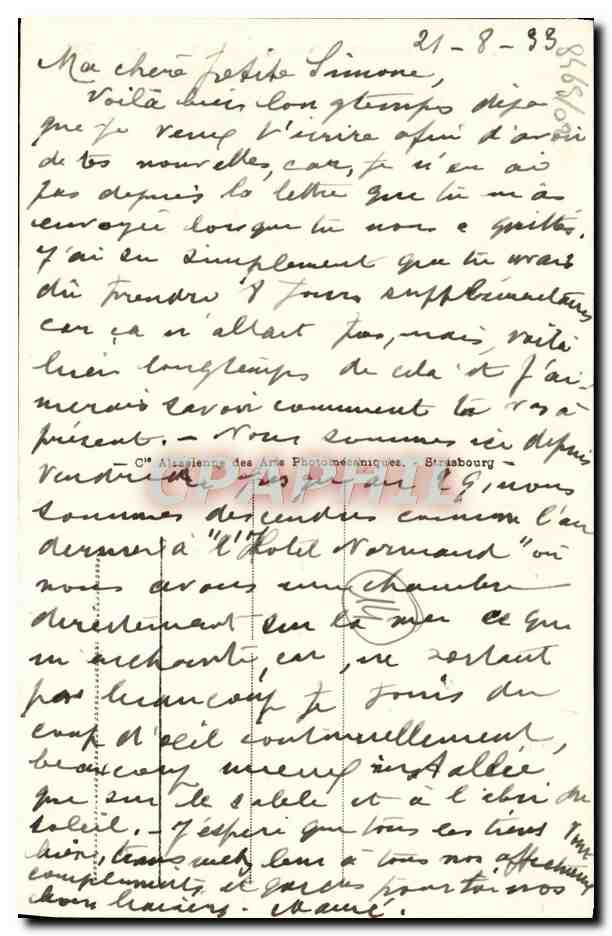 21 - 8 - 33
Ma chère petite Simone,
Voilà bien longtemps déja
que je veux t'écrire afin d'avoir
de tes nouvelles, car, je n'en ai
pas depuis la lettre que tu m'as
envoyée lorsque tu nous a quittés.
J'ai su simplement que tu avais
dû prendre 8 jours supplémentaires
car ça n'allait pas, mais, voilà
bien longtemps de cela et j'ai-
merais savoir comment tu vas à
présent. - Nous sommes ici depuis
Cie Alsacienne des Arts Photomécaniques. - Strasbourg
Vendredi jusqu'au 29, nous
CPAPHIL
sommes descendus comme l'an
dernier à "l'Hotel Normand" où
nous avons une chambre
directement sur la mer ce qui
m'enchante, car, ne sortant
pas beaucoup je jouis du
coup d'œil continuellement,
beaucoup mieux installée
que sur le sable et à l'abri du
soleil. - J'espère que tous les tiens vont
bien, transmets leur à tous nos affectueux
compliments et gardes pour toi nos
bons baisers.